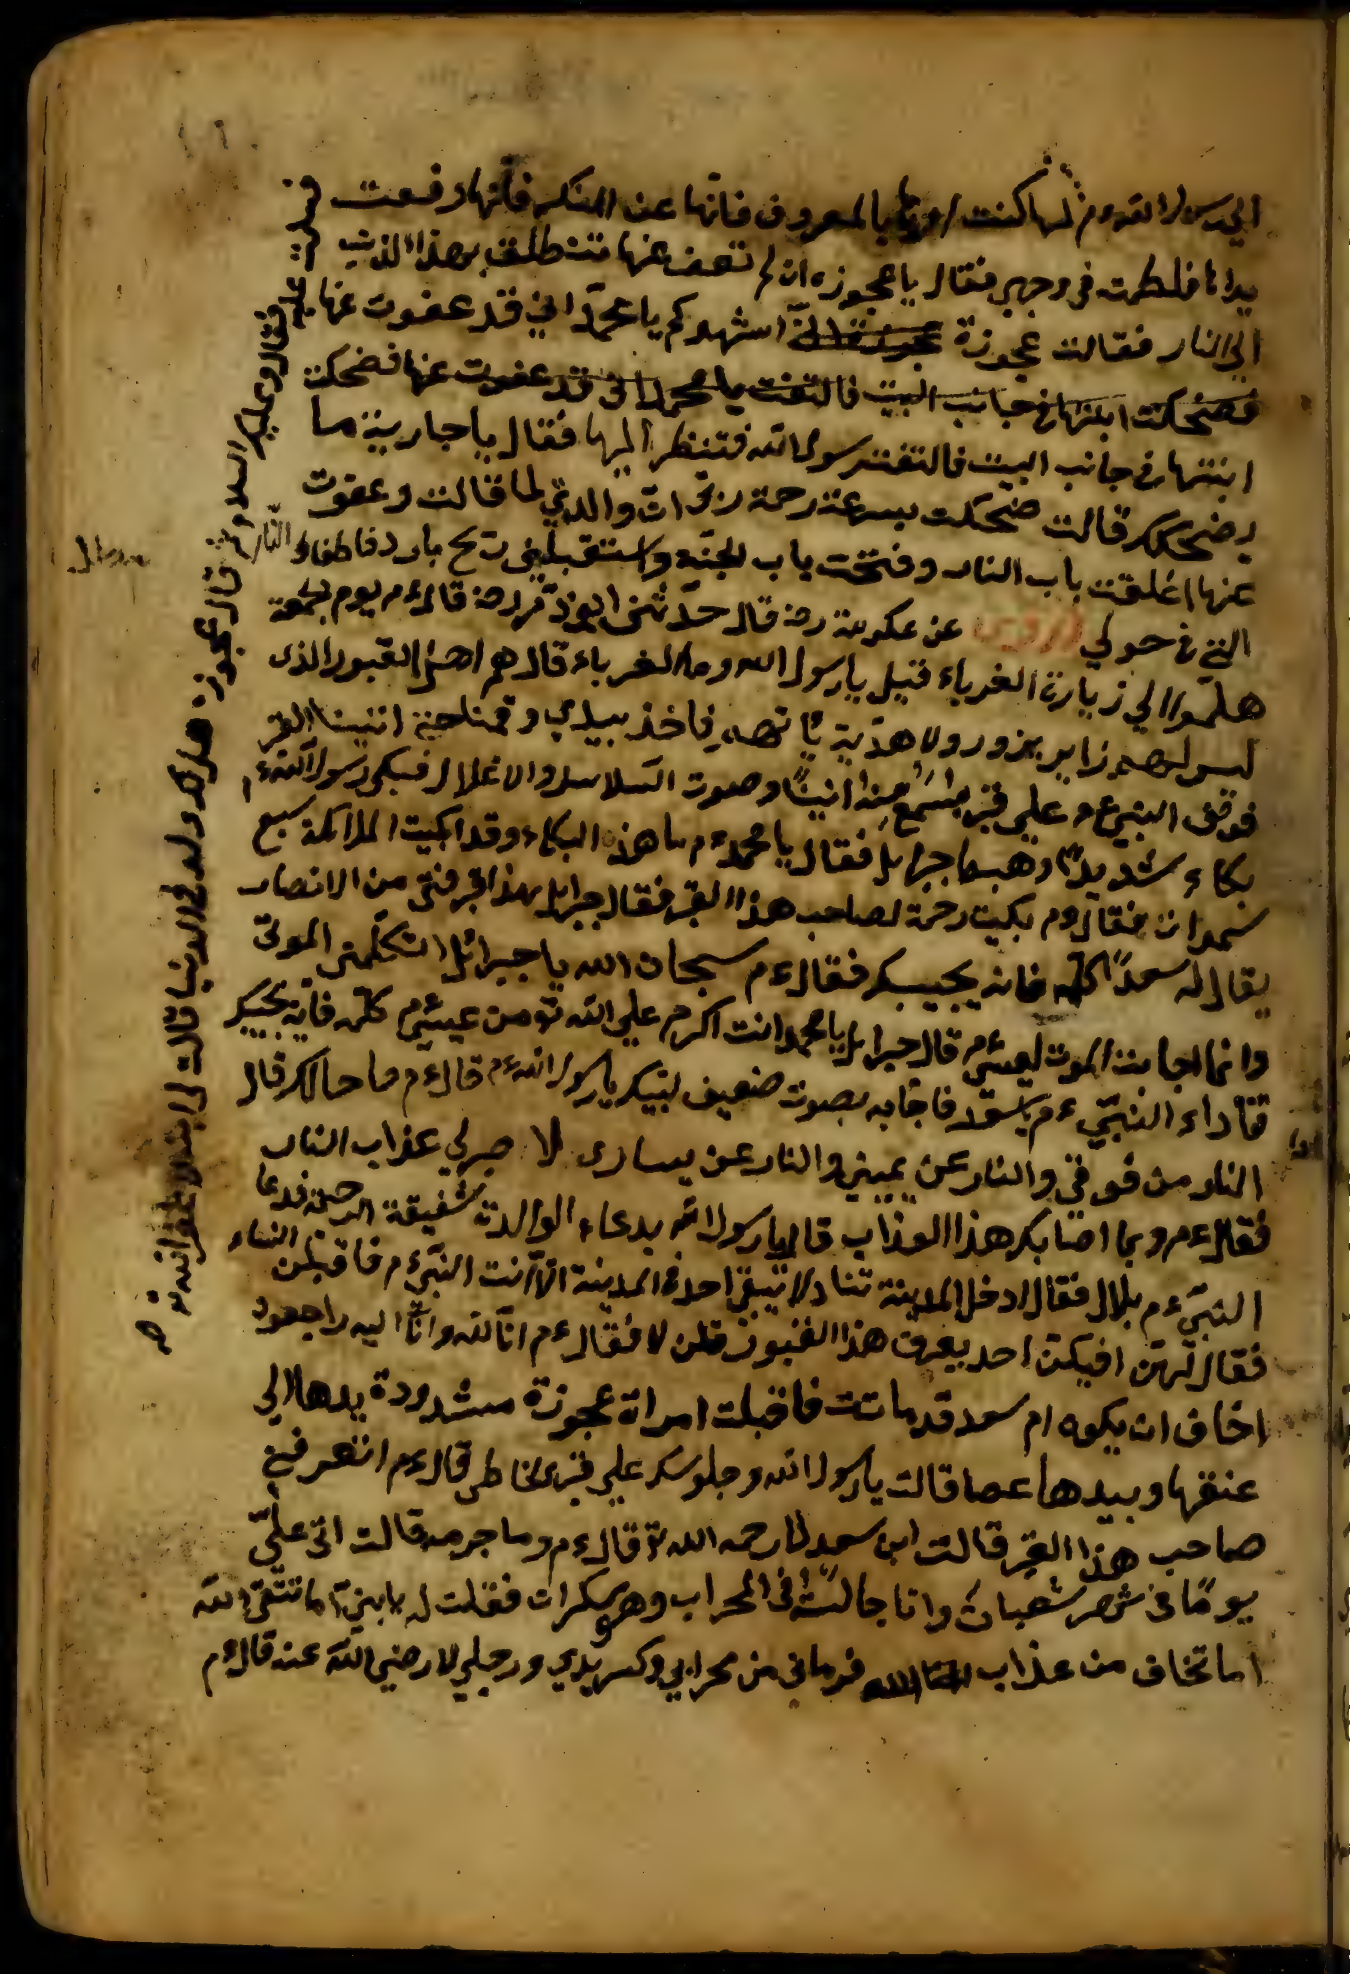 الي رسول الله ءم لها كنت امرها بالمعروف فانها عن المنكر فانها رفعت
يداها فلطمت في وجهي فقال يا عجوزه ان لم تعف عنها تنطلق بهذا الذنب
الي النار فقالت عجوزة اشهدكم يا محمد اني قد عفوت عنها
فضحكت ابنتها في جانب البيت فالتفت يا محمد اني قد عفوت عنها فضحكت
ابنتها في جانب البيت فالتفت رسول الله فتنظر اليها فقال يا جارية ما
يضحكك قالت ضحكت بسرعة رحمة ربي ان والدتي لما قالت وعفوت
عنها اغلقت باب النار وفتحت باب الجنة واستقبلني ريح بارد فاطفاء النار
التي في حولي روي عن عكرمة رضه قال حدثني ابو ذر رضه قال ءم يوم الجمعة
هلموا الي زيارة الغرباء قيل يا رسول الله وما الغرباء قال هم اهل القبور الذى
ليس لهم زاير يزور ولا هدية ياتهم فاخذ بيدي وقمنا حتي اتينا القبر
فوقف النبي ءم علي قبر يسمع منه انينًا وصوت السلاسل والاغلال فبكى رسول الله ءم
بكاء شديدًا وهبط جبرايل فقال يا محمد ءم ما هذه البكاء وقد ابكيت الملائكة سبع
سموات فقال ءم بكيت رحمة لصاحب هذا القبر فقال جبرايل هذا قبر فتى من الانصار
يقال له سعدًا كلمه فانه يجيبك فقال ءم سبحان الله يا جبرائل اتكلمني الموتى
وانما اجابت الموت لعيسى ءم قال جبرايل يا محمد انت اكرم علي الله تع من عيسى ءم كلمه فانه يجيبك
فناداء النبي ءم يا سعد فاجابه بصوت ضعيف لبيك يا رسول الله ءم قال ءم ما حالك قال
النار من فوقي والنار عن يميني والنار عن يسارى لا صبر لي عذاب النار
فقال ءم وبما اصابك هذا العذاب قال يا رسول الله بدعاء الوالدة شفيقة الرحمة فدعا
النبي ءم بلال فقال ادخل المدينة تناد لا تبقى احد في المدينة الا انت النبي ءم فاقبلن النساء
فقال لهن افيكن احد يعرف هذا القبور قلن لا فقال ءم انا لله وانا اليه راجعون
اخاف ان يكون ام سعد قد ماتت فاقبلت امراة عجوزة مشدودة يدها الي
عنقها وبيدها عصا قالت يا رسول الله وجلوسك علي قبر الخاطى قال ءم اتعرفين
صاحب هذا القبر قالت ابن سعد لا رحمه الله تع قال ءم وما جرمه قالت اتى علي
يومًا في شهر شعبان وانا جالسة في المحراب وهو سكران فقلت له يا بني اما تتقي الله
اما تخاف من عذاب الله فرمانى من محرابي وكسر يدي ورجلي لا رضي الله عنه قال ءم
فقال عليه السلام
قال عجوزة هل لك ولد في الدنيا قالت لي